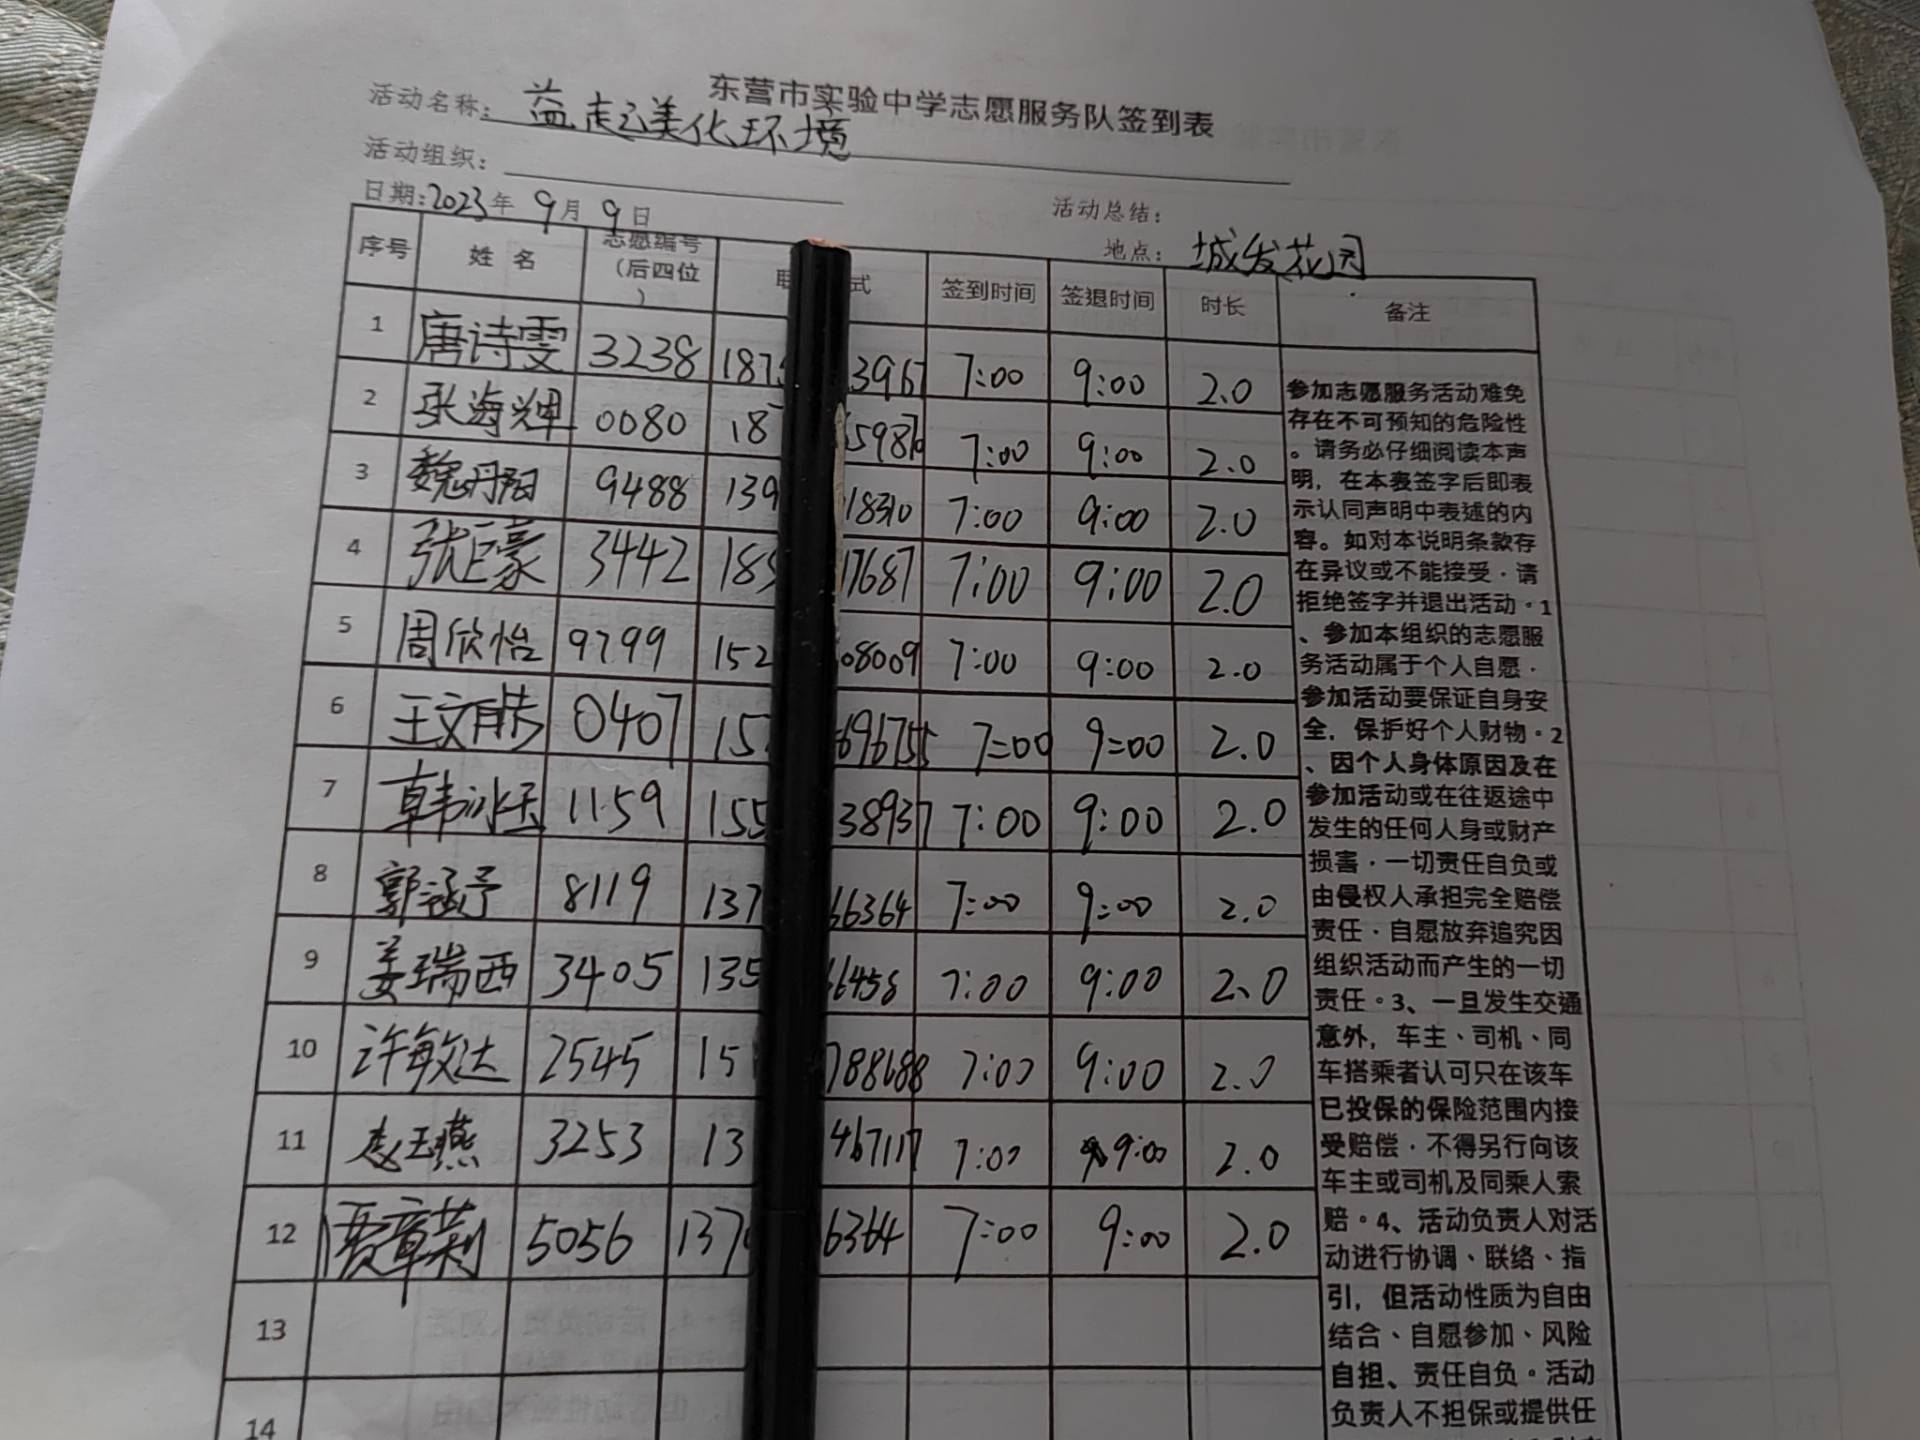 东营市实验中学志愿服务队签到表
活动名称：益起美化环境
活动组织：
日期:2023年 9月 9日 活动总结：
地点： 城发花园
序号 姓 名 志愿编号（后四位） 式 签到时间 签退时间 时长 备注
1 唐诗雯 3238 187 3967 7:00 9:00 2.0
2 张海燁 0080 18 5987 7:00 9:00 2.0
3 魏丹阳 9488 139 18310 7:00 9:00 2.0
4 张巨豪 3442 185 17687 7:00 9:00 2.0
5 周欣怡 9799 152 08009 7:00 9:00 2.0
6 王文 0407 15 696755 7:00 9:00 2.0
7 韩冰玉 1159 155 38937 7:00 9:00 2.0
8 郭涵予 8119 137 66364 7:00 9:00 2.0
9 姜瑞西 3405 135 66458 7:00 9:00 2.0
10 许敏达 2545 15 788688 7:00 9:00 2.0
11 赵玉燕 3253 13 467117 7:00 9:00 2.0
12 贾章莉 5056 137 6364 7:00 9:00 2.0
13
14
参加志愿服务活动难免
存在不可预知的危险性
。请务必仔细阅读本声
明，在本表签字后即表
示认同声明中表述的内
容。如对本说明条款存
在异议或不能接受，请
拒绝签字并退出活动。1
、参加本组织的志愿服
务活动属于个人自愿，
参加活动要保证自身安
全，保护好个人财物。2
、因个人身体原因及在
参加活动或在往返途中
发生的任何人身或财产
损害，一切责任自负或
由侵权人承担完全赔偿
责任，自愿放弃追究因
组织活动而产生的一切
责任。3、一旦发生交通
意外，车主、司机、同
车搭乘者认可只在该车
已投保的保险范围内接
受赔偿，不得另行向该
车主或司机及同乘人索
赔。4、活动负责人对活
动进行协调、联络、指
引，但活动性质为自由
结合、自愿参加、风险
自担、责任自负。活动
负责人不担保或提供任